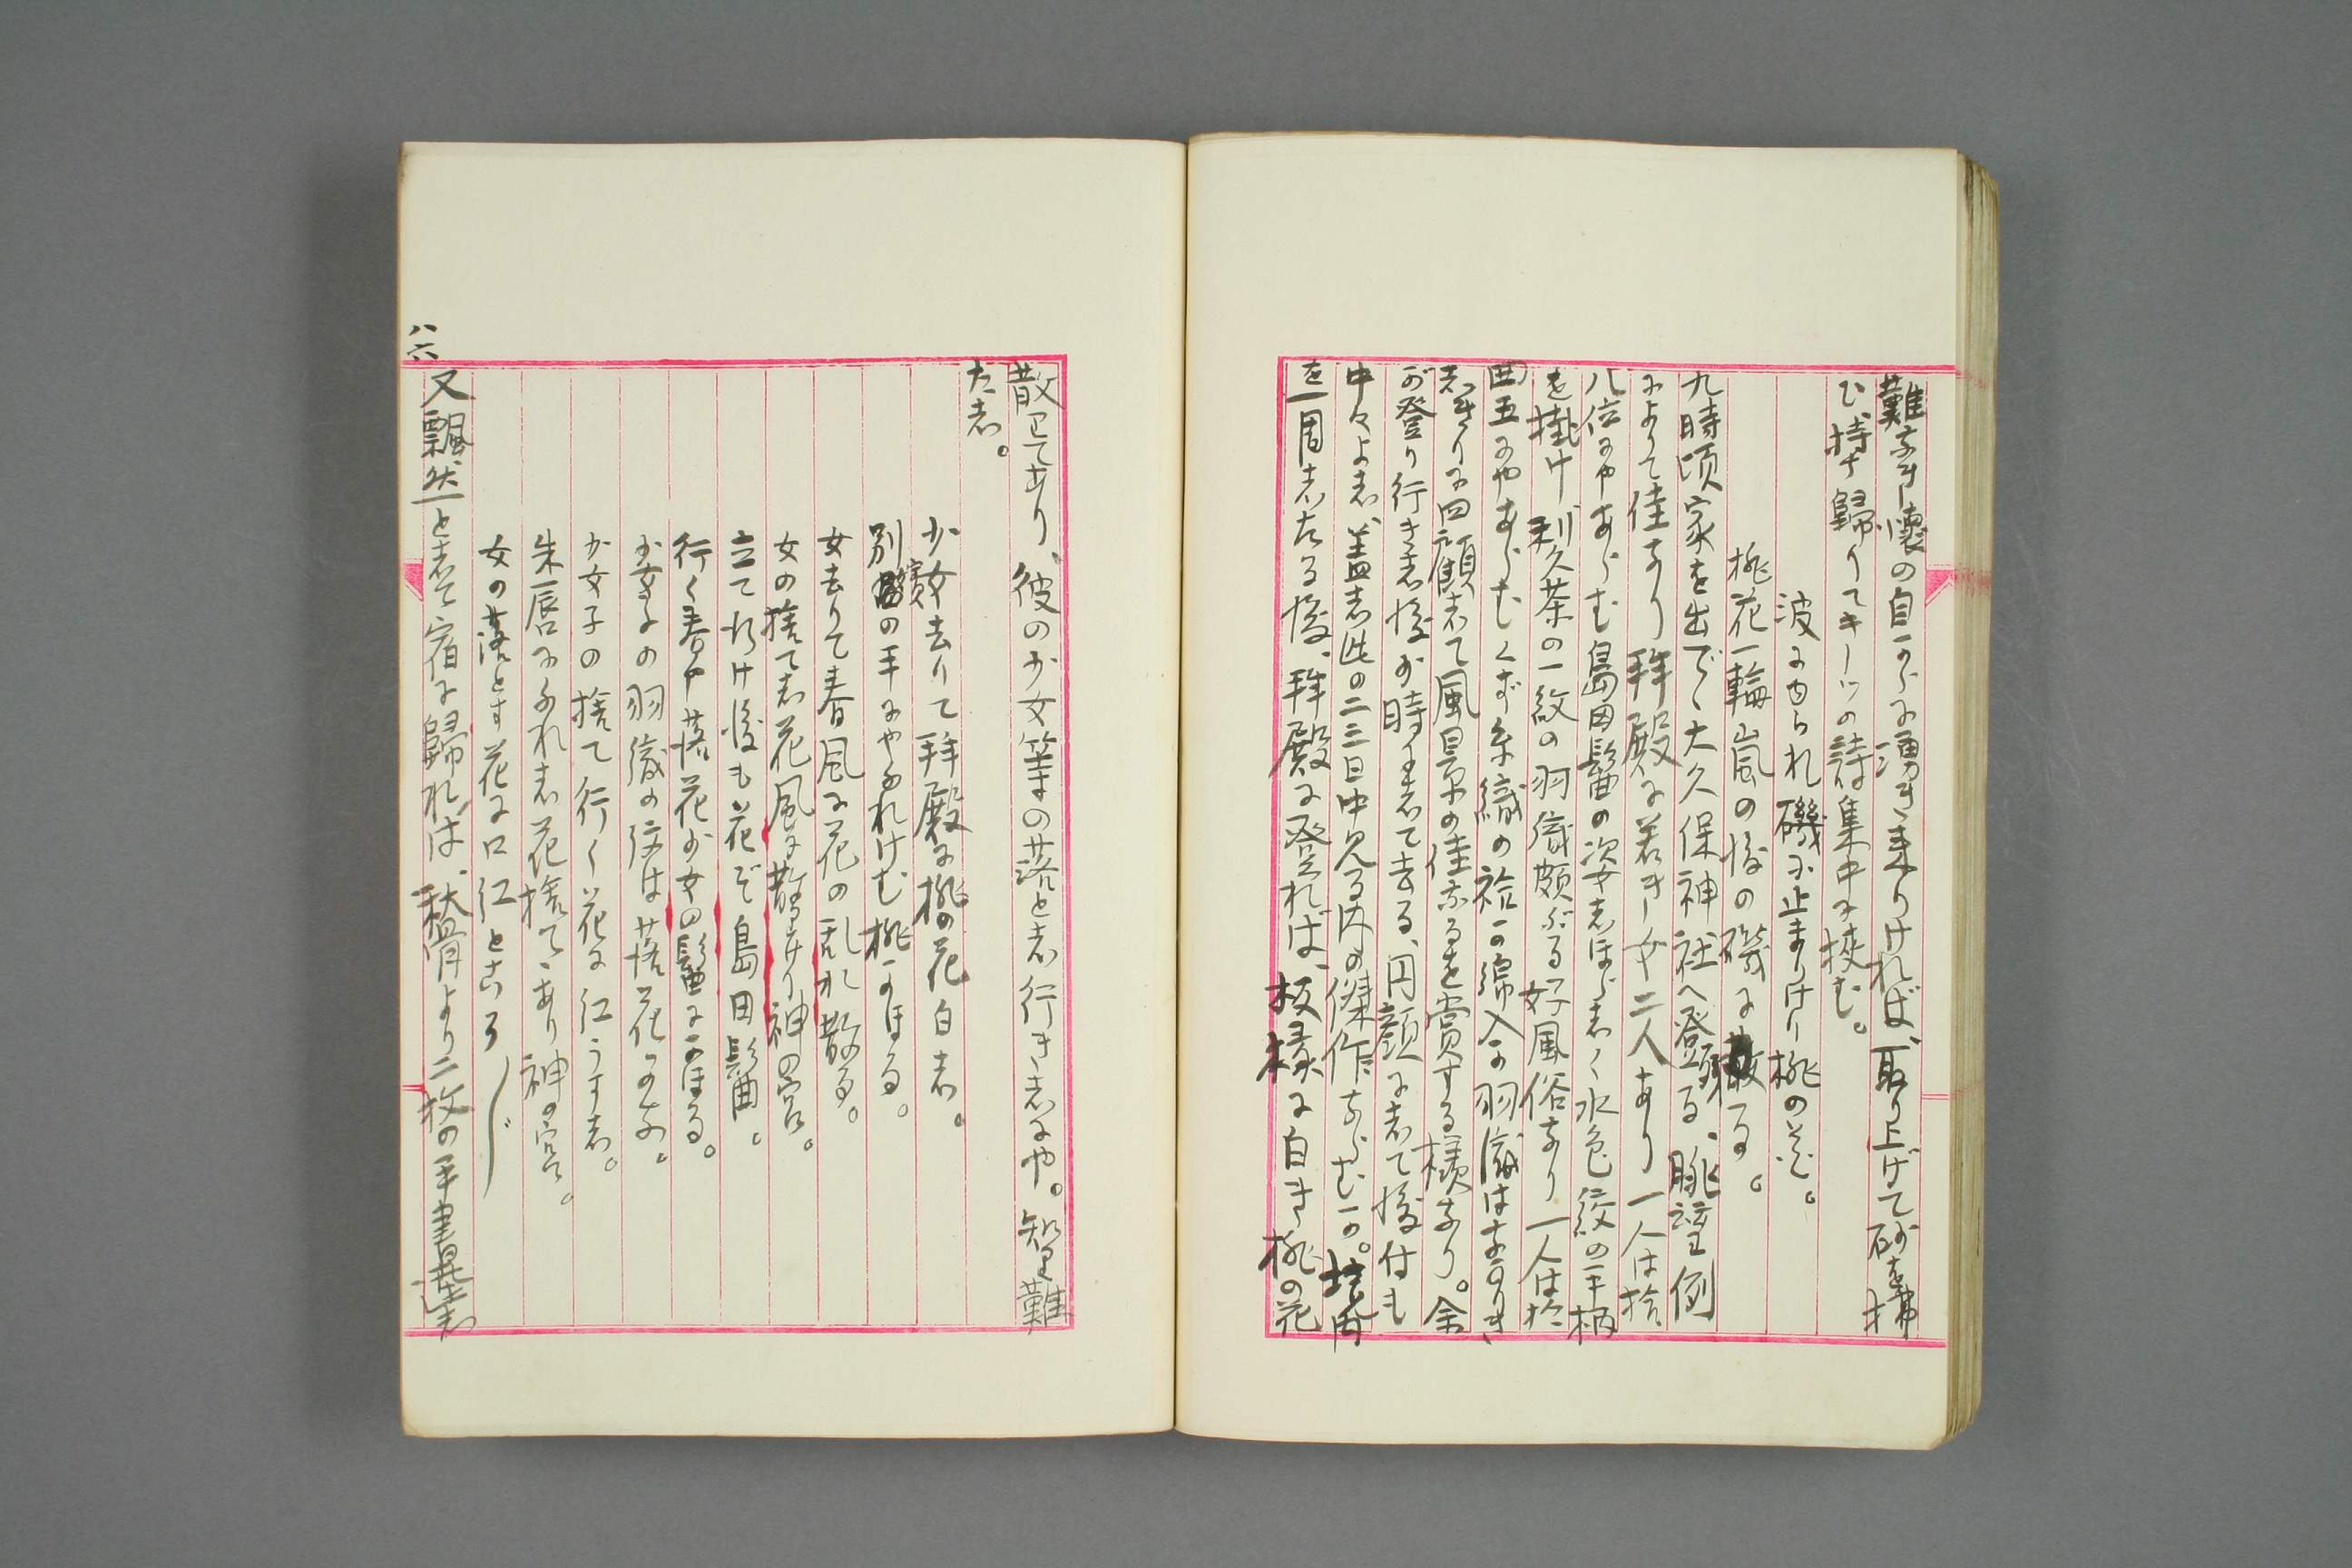 難き懐の自から湧き来りければ、取り上げて砂を拂
ひ持ち歸りてキーツの詩集中に挾む。
波にゆられ磯に止まりけり桃の花。
桃花一輪嵐の後の磯に散る。
九時頃家を出でゝ大久保神社へ登る、眺望例
によりて佳なり拜殿に若き女二人あり一人は拾
八位にやあらむ島田髷の姿しほらしく水色絞の手柄
を掛け利久茶の一紋の羽織頗ぶる好風俗なり一人は拾
四五にやあらむくず糸織の袷の綿入の羽織はなりき
しきりに四顧して風景の佳なるを賞する様なり。余
が登り行きし後少時にして去る、円顔にして後付も
中々よし蓋し此の二三日中見る内の傑作ならむか。境内
を一周したる後、拜殿に登れば、板椽に白き桃の花
散りてあり、彼の少女等の落とし行きしにや。知り難
たし。
少女去りて拜殿に桃の花白し。
別嬪の手にやふれけむ桃かほる。
女去りて春風に花の乱れ散る。
女の捨てし花風に散りけり神の宮。
立て行け後も花ぞ島田髷。
行く春や落花少女の髷にかほる。
少女子の羽織の紋は落花かな。
少女子の捨て行く花に紅うすし。
朱唇にふれし花捨てゝあり神の宮。
女の落とす花に口紅ところ〴〵
八六
又飄然として宿に歸れば、秋骨より二枚の手書達し